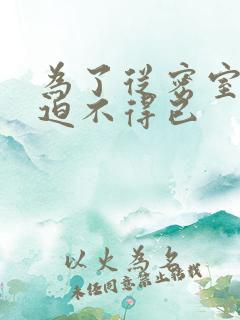 為了從密室
迫不得已
以火為名
未经同意禁止转载